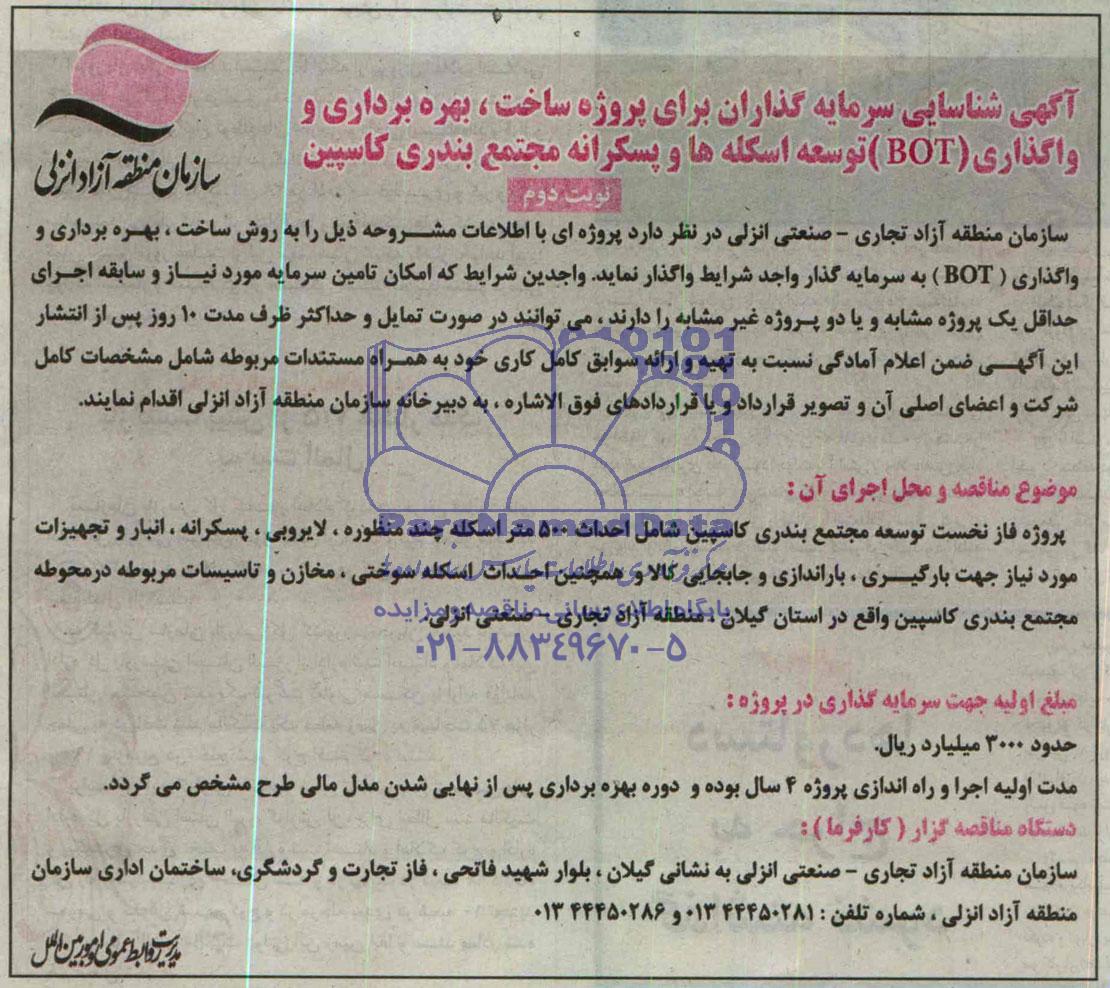 سازمان منطقه آزاد انزلی
آگهی شناسایی سرمایه گذاران برای پروژه ساخت ، بهره برداری و
واگذاری (BOT) توسعه اسکله ها و پسکرانه مجتمع بندری کاسپین
نوبت دوم
سازمان منطقه آزاد تجاری - صنعتی انزلی در نظر دارد پروژه ای با اطلاعات مشروحه ذیل را به روش ساخت ، بهره برداری و
واگذاری ( BOT ) به سرمایه گذار واجد شرایط واگذار نماید. واجدین شرایط که امکان تامین سرمایه مورد نیاز و سابقه اجرای
حداقل یک پروژه مشابه و یا دو پروژه غیر مشابه را دارند ، می توانند در صورت تمایل و حداکثر ظرف مدت ۱۰ روز پس از انتشار
این آگهی ضمن اعلام آمادگی نسبت به تهیه و ارائه سوابق کامل کاری خود به همراه مستندات مربوطه شامل مشخصات کامل
شرکت و اعضای اصلی آن و تصویر قرارداد و یا قراردادهای فوق الاشاره ، به دبیرخانه سازمان منطقه آزاد انزلی اقدام نمایند.
موضوع مناقصه و محل اجرای آن :
پروژه فاز نخست توسعه مجتمع بندری کاسپین شامل احداث ۵۰۰ متر اسکله چند منظوره ، لایروبی ، پسکرانه ، انبار و تجهیزات
مورد نیاز جهت بارگیری ، باراندازی و جابجایی کالا و همچنین احداث اسکله سوختی ، مخازن و تاسیسات مربوطه درمحوطه
مجتمع بندری کاسپین واقع در استان گیلان ، منطقه آزاد تجاری - صنعتی انزلی.
پایگاه اطلاع رسانی مناقصه و مزایده
۰۲۱-۸۸۳۴۹۶۷۰-۵
مبلغ اولیه جهت سرمایه گذاری در پروژه :
حدود ۳۰۰۰ میلیارد ریال.
مدت اولیه اجرا و راه اندازی پروژه ۴ سال بوده و دوره بهره برداری پس از نهایی شدن مدل مالی طرح مشخص می گردد.
دستگاه مناقصه گزار ( کارفرما ) :
سازمان منطقه آزاد تجاری - صنعتی انزلی به نشانی گیلان ، بلوار شهید فاتحی ، فاز تجارت و گردشگری، ساختمان اداری سازمان
منطقه آزاد انزلی ، شماره تلفن : ۴۴۴۵۰۲۸۱ ۰۱۳ و ۴۴۴۵۰۲۸۶ ۰۱۳
مدیریت روابط عمومی و امور بین الملل